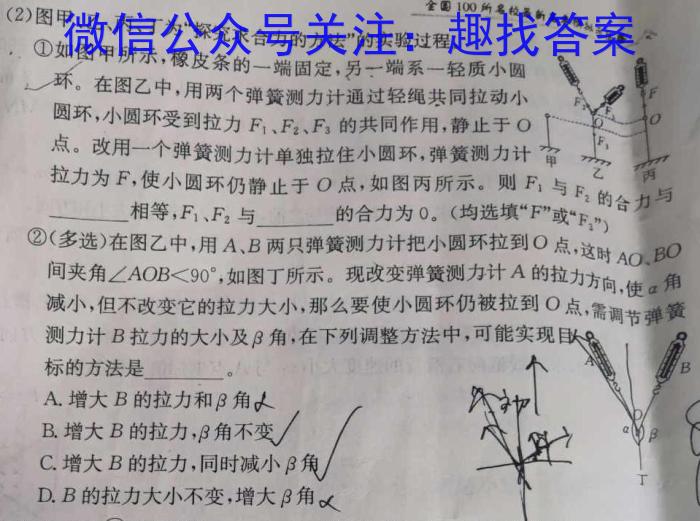 全国100所名校最新
(2)图甲、乙、丙 为“探究求合力的方法”的实验过程
微信公众号关注：趣找答案
①如图甲所示,橡皮条的一端固定,另一端系一轻质小圆
环。在图乙中,用两个弹簧测力计通过轻绳共同拉动小
圆环,小圆环受到拉力 F₁、F₂、F₃ 的共同作用,静止于 O
点。改用一个弹簧测力计单独拉住小圆环,弹簧测力计
拉力为 F,使小圆环仍静止于 O 点,如图丙所示。则 F₁ 与 F₂ 的合力与
________相等,F₁、F₂ 与________的合力为 0。(均选填“F”或“F₃”)
F₂
F₁
O
F₃
F
O
甲
乙
丙
②(多选)在图乙中,用 A、B 两只弹簧测力计把小圆环拉到 O 点,这时 AO、BO
间夹角∠AOB<90°,如图丁所示。现改变弹簧测力计 A 的拉力方向,使 α 角
减小,但不改变它的拉力大小,那么要使小圆环仍被拉到 O 点,需调节弹簧
测力计 B 拉力的大小及 β 角,在下列调整方法中,可能实现目
标的方法是________。
A. 增大 B 的拉力和 β 角
B. 增大 B 的拉力,β 角不变
C. 增大 B 的拉力,同时减小 β 角
D. B 的拉力大小不变,增大 β 角
A
B
O
α
β
丁